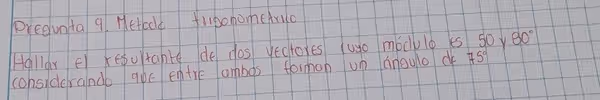 Pregunta 9. Metodo trigonometrico
Hallar el resultante de dos vectores cuyo módulo es 50 y 80°
considerando que entre ambos forman un ángulo de 75°